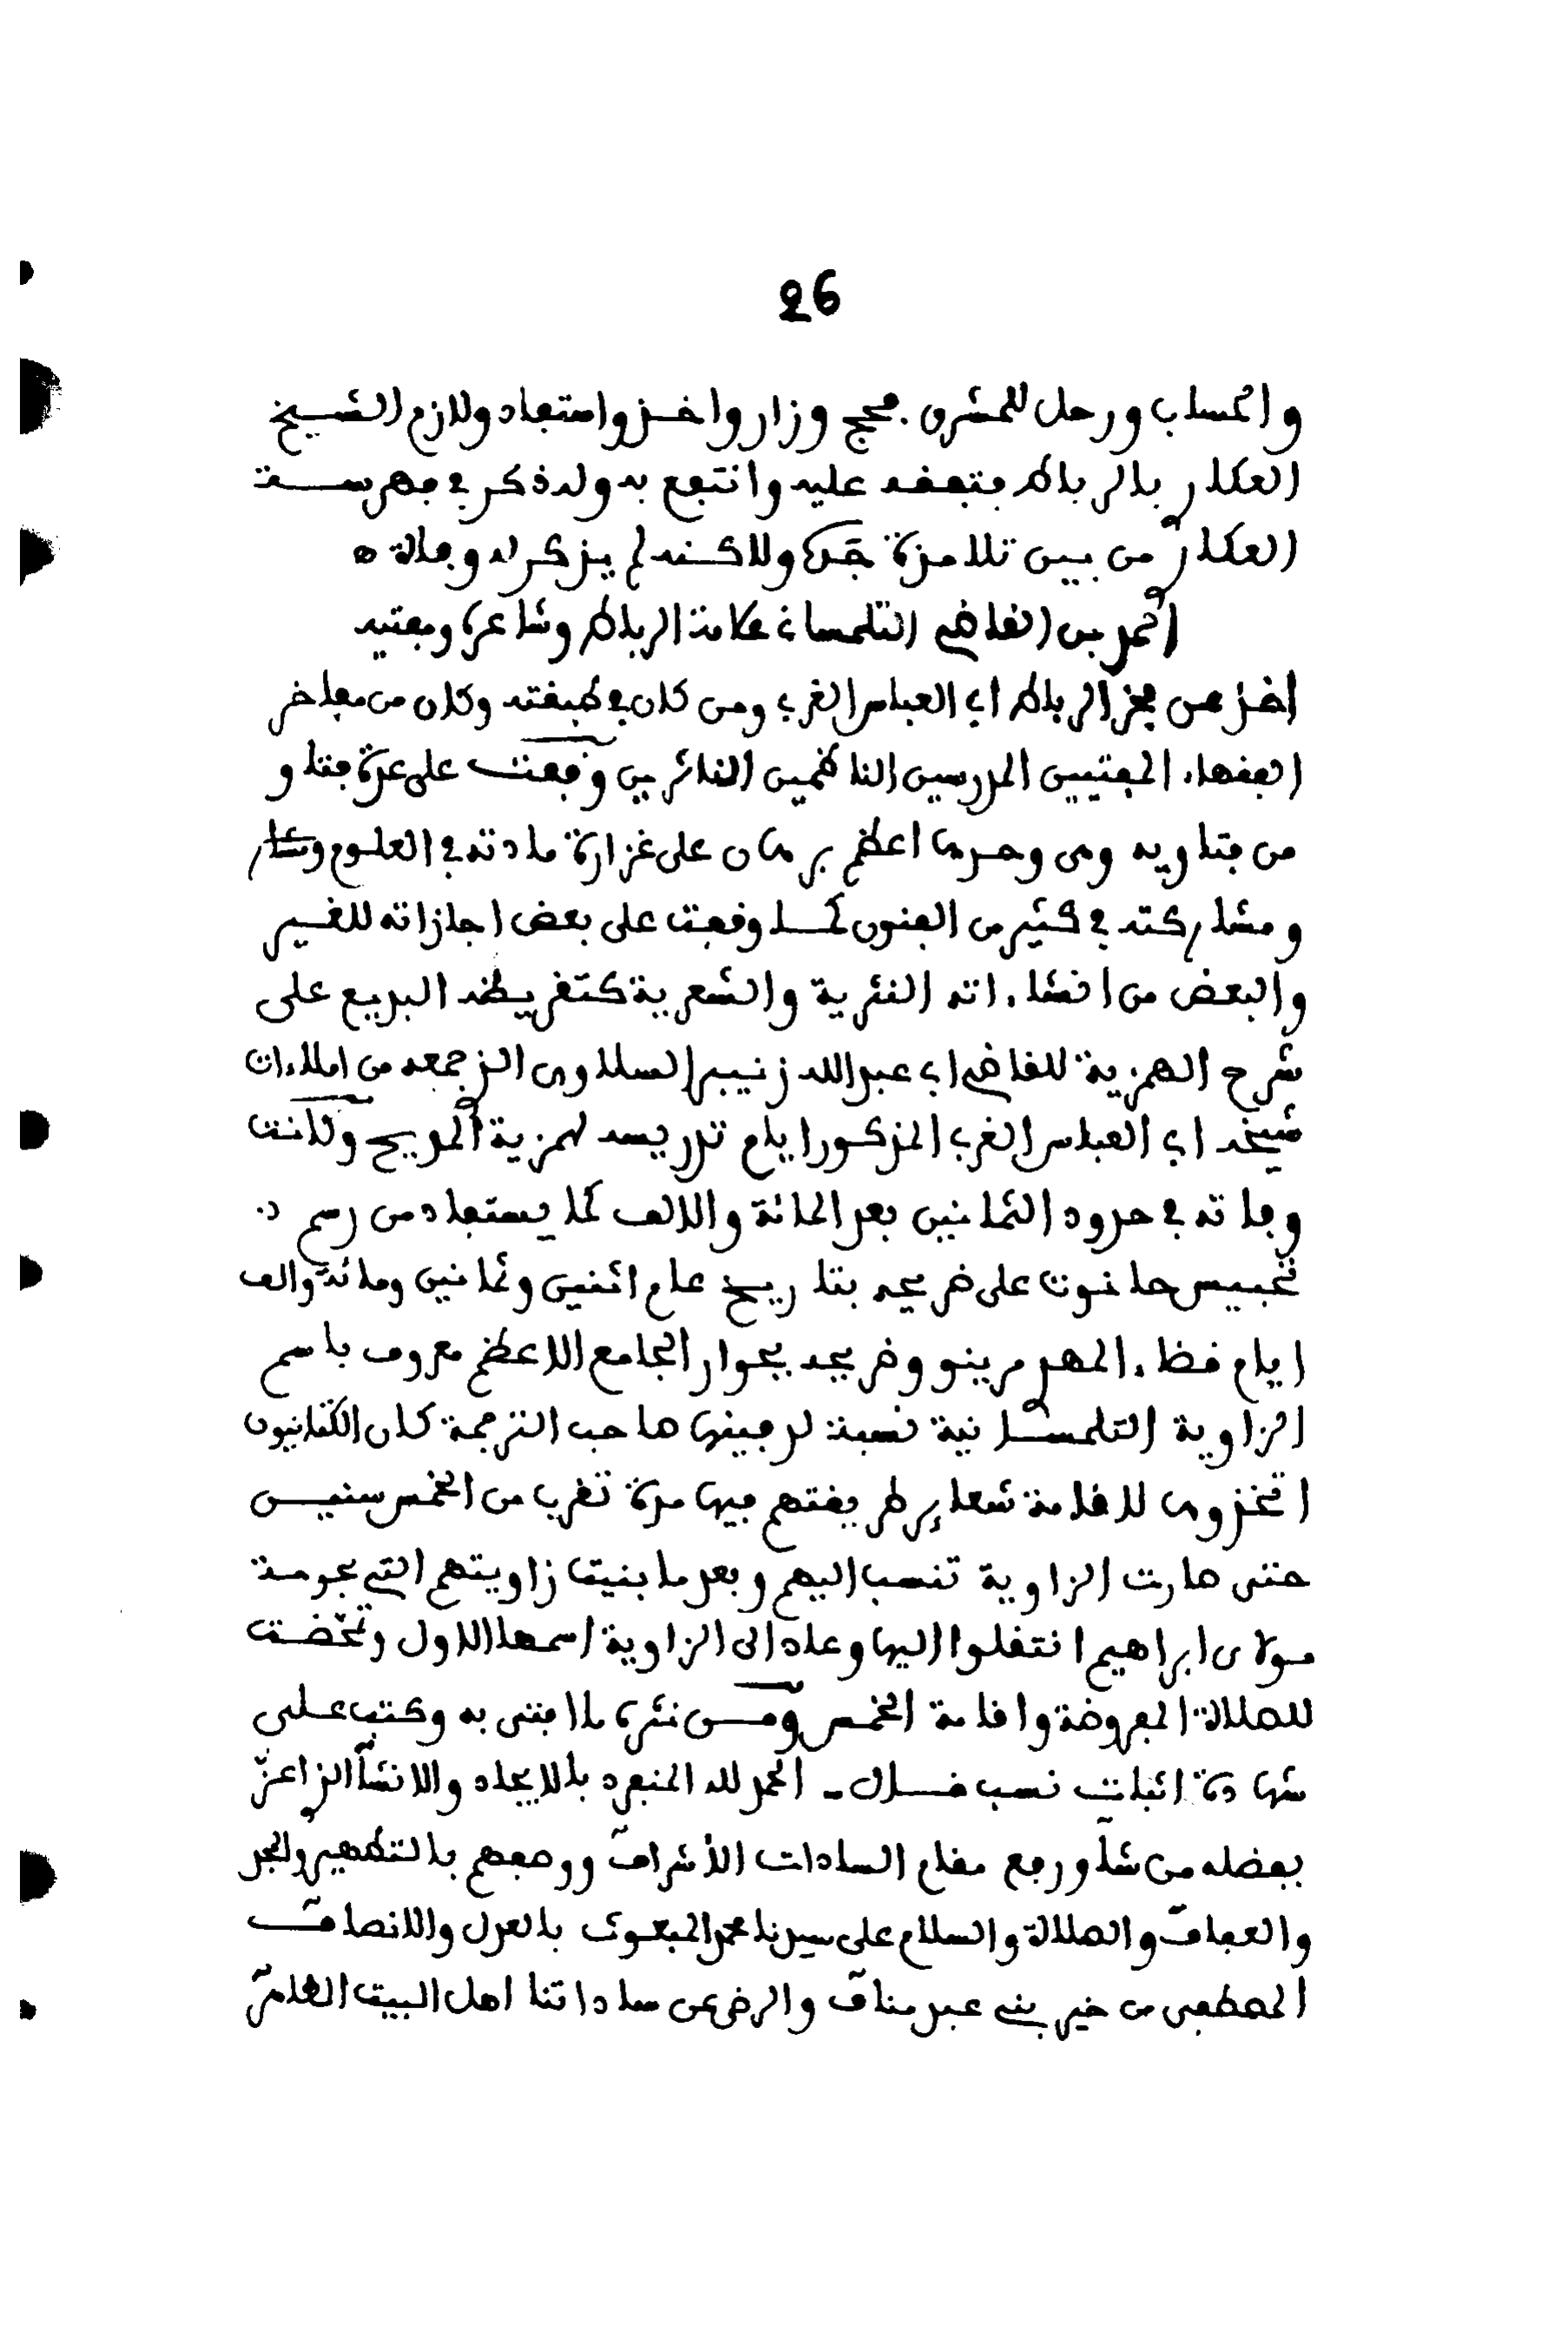 26
والحساب ورحل للمشرق فحج وزار واخذ واستفاد ولازم الشيخ
العكاري بالرباط فتفقه عليه وانتفع به وله ذكر في فهرسة
العكاري من بين تلامذة جده ولاكنه لم يذكر له وفاة ه
احمد بن القاضي التلمساني علامة الرباط وشاعره ومفتيه
اخذ عن فخر الرباط ابي العباس الغربي ومن كان في طبقته وكان من مفاخر
الفقهاء المفتيين المدرسين الناظمين الناثرين وقفت على عدة فتاو
من فتاويه وهي وحدها اعظم برهان على غزارة مادته في العلوم
ومشاركته في كثير من الفنون كما وقفت على بعض اجازاته للغير
والبعض من انشاءاته النثرية والشعرية كتقريظه البديع على
شرح الهمزية للقاضي ابي عبد الله زنيبر السلاوي الذي جمعه من املاءات
شيخه ابي العباس الغربي المذكور ايام تدريسه لهمزية المديح وكانت
وفاته في حدود الثمانين بعد المائة والالف كما يستفاد من رسم
تحبيس حانوت على ضريحه بتاريخ عام اثنين وثمانين ومائة والف
ايام قضاء المهدي مرينو وضريحه بجوار الجامع الاعظم معروف باسم
الزاوية التلمسانية نسبة لدفينها صاحب الترجمة كان الكتانيون
اتخذوها لاقامة شعائر طريقتهم فيها مدة تقرب من الخمس سنين
حتى صارت الزاوية تنسب اليهم وبعد ما بنيت زاويتهم التي بحومة
مولاي ابراهيم انتقلوا اليها وعاد الى الزاوية اسمها الاول وتمحضت
للصلاة المفروضة واقامة الخمس ومن نثره ما افتى به وكتب على
شهادة اثبات نسب فلان - الحمد لله المنفرد بالايجاد والانشآ الذي اعز
بفضله من شآ ورفع مقام السادات الأشراف ووصفهم بالتطهير والمجد
والعفاف والصلاة والسلام على سيدنا محمد المبعوث بالعدل والانصاف
المصطفى من خير بني عبد مناف والرضى عن ساداتنا اهل البيت الطاهر